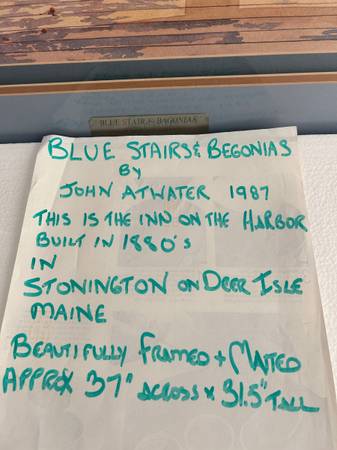 BLUE STAIRS & BEGONIAS
BLUE STAIRS & BEGONIAS
BY
JOHN ATWATER 1987
THIS IS THE INN ON THE HARBOR
BUILT IN 1880's
IN
STONINGTON ON DEER ISLE
MAINE
BEAUTIFULLY FRAMED + MATTED
APPROX 37" ACROSS x 31.5" TALL